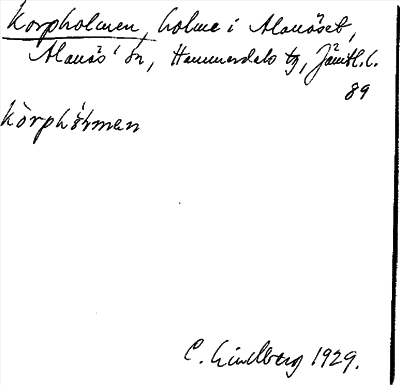 Korpholmen, holme i Alanäset,
Alanäs' sn, Hammerdals tg, Jämtl. l.
89
kòrphɷ̀ḷmen
C. Lindberg 1929.